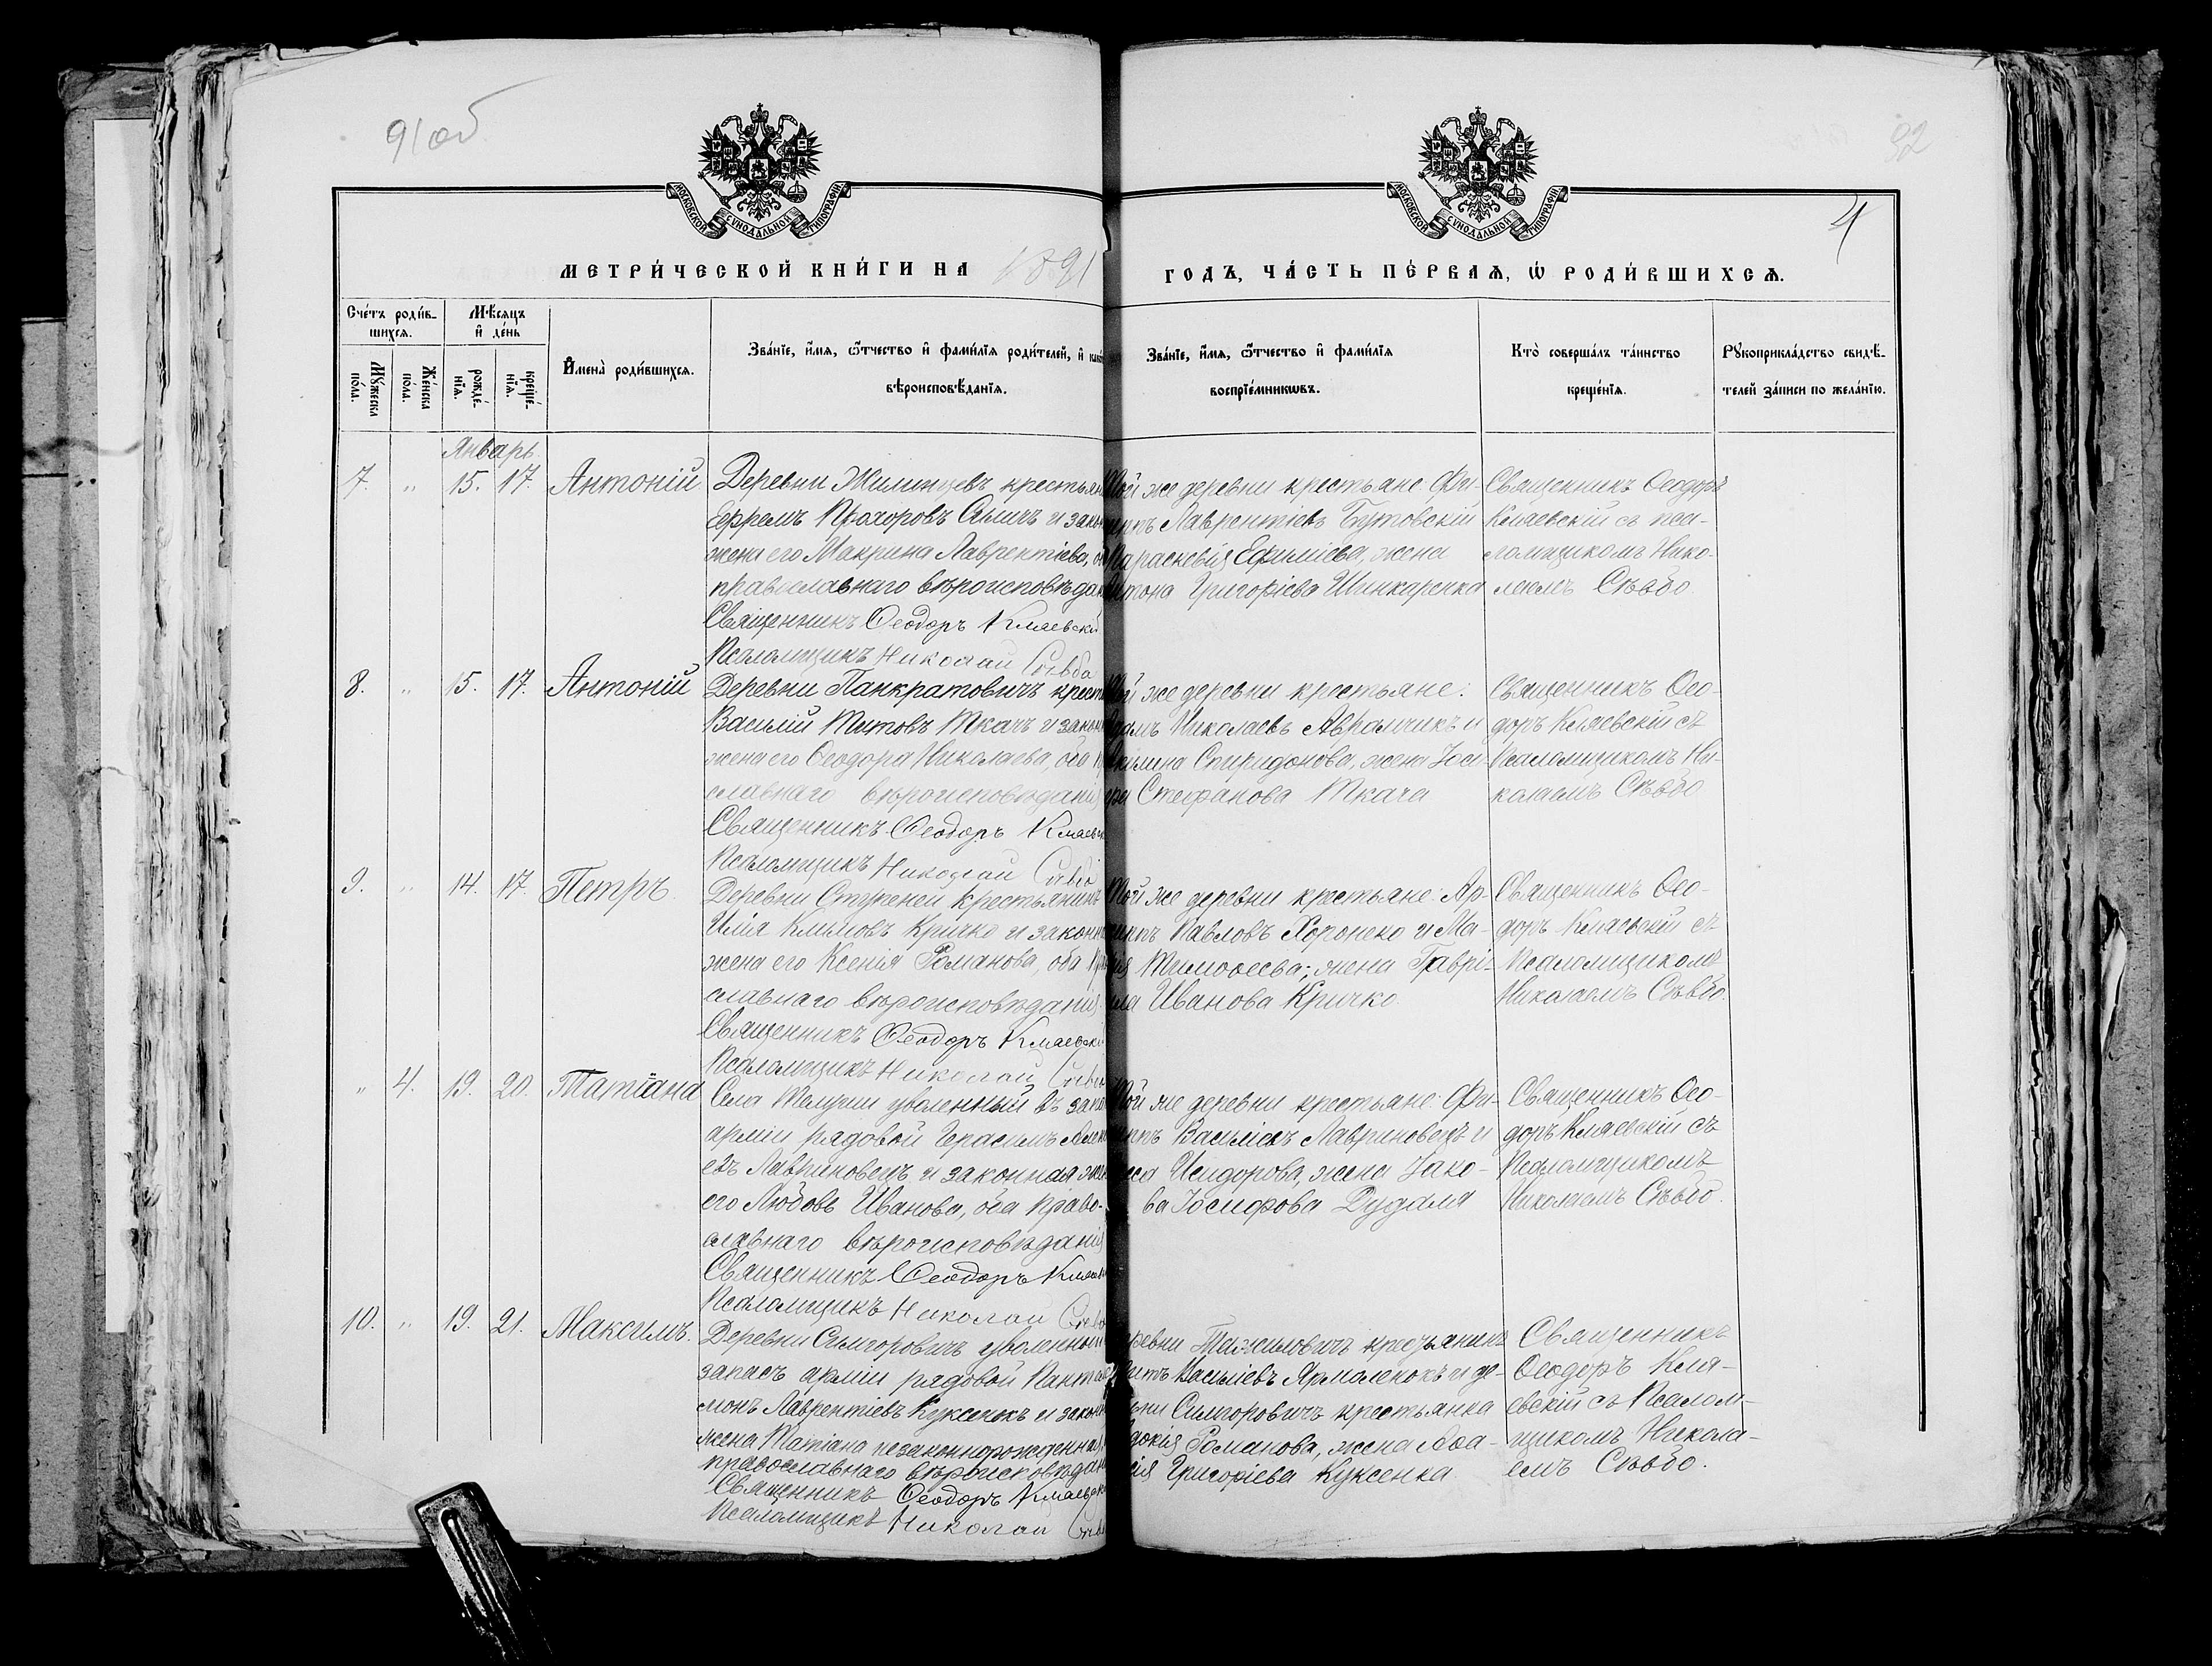 91 об
92
4
МОСКОВСКОЙ СѴНОДАЛЬНОЙ ТИПОГРАФІИ
МОСКОВСКОЙ СѴНОДАЛЬНОЙ ТИПОГРАФІИ
МЕТРИ́ЧЕСКОЙ КНИ́ГИ НА 1891
ГОДЪ, ЧА́СТЬ ПЕ́РВАѦ, Ѡ҆ РОДИ́ВШИХСѦ.
Сче́тъ роди́в-
шихсѧ.
Мꙋ́жеска по́ла.
Же́нска по́ла.
Мѣ́сѧцъ
и҆ де́нь
рожде́-
нїѧ.
креще́-
нїѧ.
И҆мена̀ роди́вшихсѧ.
Зва́нїе, и҆́мѧ, ѻ҆́тчество и҆ фами́лїѧ роди́телей, и҆
вѣроисповѣ́данїѧ.
Зва́нїе, и҆́мѧ, ѻ҆́тчество и҆ фами́лїѧ
воспрїе́мникѡвъ.
Кто̀ соверша́лъ та́инство
креще́нїѧ.
Рꙋкоприкла́дство свидѣ́-
телей за́писи по жела́нїю.
Январь.
7. " 15. 17. Антоній
Деревни крестьян
Ефремъ Прохоровъ и зако
жена его Макрина Лаврентіева, о
православнаго вѣроисповѣдан
Священникъ Ѳеодоръ Кмаевскі
Псаломщикъ Николай Сѣвбо
Той же деревни крестьяне: Фи-
иппъ Лаврентіевъ Бутовскій
Параскевія Ефиміева, жена
Антона Григоріева Шинкаренка
Священникъ Ѳеодоръ
Кмаевскій съ пса-
ломщикомъ Нико-
лаемъ Сѣвбо
8. " 15. 17. Антоній
Деревни Панкратовичъ крест
Василій Титовъ Ткачъ и закон
жена его Ѳеодора Николаева, оба п
славнаго вѣроисповѣданія
Священникъ Ѳеодоръ Кмаевс
Псаломщикъ Николай Сѣвбо
Той же деревни крестьяне:
Адамъ Николаевъ Аврамчикъ и
Акилина Спиридонова, жена Іоси-
фа Стефанова Ткача
Священникъ Ѳео-
доръ Кмаевскій съ
Псаломщикомъ Ни-
колаемъ Сѣвбо
9. " 14. 17. Петръ.
Деревни Ступеней крестьянинъ
Илія Климовъ Кричко и законн
жена его Ксенія Романова, оба пра
славнаго вѣроисповѣданія
Священникъ Ѳеодоръ Кмаевскі
Псаломщикъ Николай Сѣвбо
Той же деревни крестьяне: Ар-
хиппъ Павловъ Хоронеко и Ма-
рія Тимоѳеева, жена Гаврі-
ила Иванова Кричко
Священникъ Ѳео-
доръ Кмаевскій съ
Псаломщикомъ
Николаемъ Сѣвбо.
" 4. 19. 20. Татіана
Села уволенный въ запа
арміи рядовой Герасимъ
евъ Лавриновецъ и законная же
его Любовь Иванова, оба право-
славнаго вѣроисповѣданія
Священникъ Ѳеодоръ Кмаев
Псаломщикъ Николай Сѣвбо
Той же деревни крестьяне: Фи-
иппъ Василіевъ Лавриновецъ и
Исидорова, жена Іако-
ва Іосифова Дудаля
Священникъ Ѳео-
доръ Кмаевскій съ
Псаломщикомъ
Николаемъ Сѣвбо.
10. " 19. 21. Максимъ.
Деревни Симгоровичъ уволенный
запасъ арміи рядовой Панте
монъ Лаврентіевъ Куксенокъ и законн
жена Татіана незаконнорожденная,
православнаго вѣроисповѣдан
Священникъ Ѳеодоръ Кмаевск
Псаломщикъ Николай Сѣвбо
еревни крестьянинъ
Титъ Василіевъ Ярмоленокъ и де-
вни Симгоровичъ крестьянка
вдокія Романова, жена Аѳа-
сія Григоріева Куксенка
Священникъ
Ѳеодоръ Кма-
евскій съ Псалом-
щикомъ Никола-
емъ Сѣвбо.